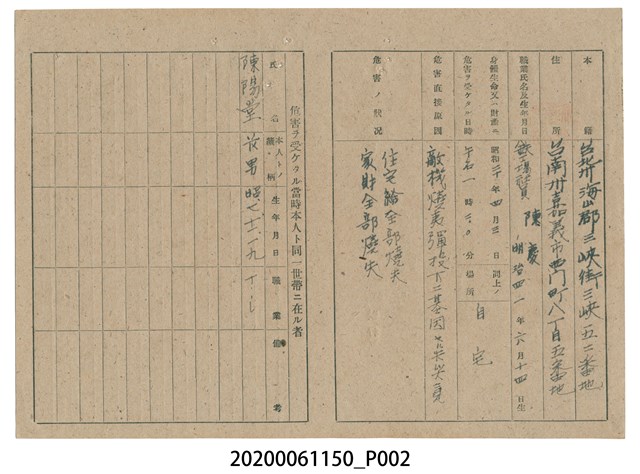 本籍 台北州海山郡三峡街三峡五二番地
住所 台南州嘉義市西門町八丁目五番地
職業氏名及生年月日 陳慶 明治四一年六月十四日生
身體生命又ハ財產ニ危害ヲ受ケタル日時 昭和二十年四月三日午后一時三〇分 同上ノ場所 自宅
危害直接原因 敵機燒夷彈投下ニ基因
危害ノ狀況 住宅全部燒失
家財全部燒失
危害ヲ受ケタル當時本人ト同一世帶ニ在ル者
氏名 本人トノ續柄 生年月日 職業 備考
陳陽堂 長男 昭
20200061150_P002